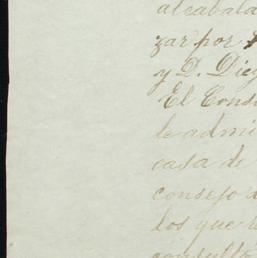 alcabala
zar por
y D. Dieg
El Cons
le admi
casa de
consejo
los que
consultó